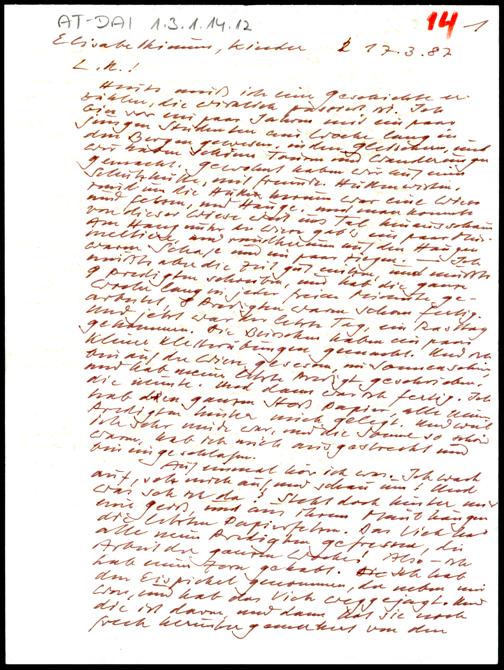 AT-DAI 1.3.1.14.12
14 1
Elisabethinum, Kinder 17.3.87
L.K.!
Heute muß ich eine Geschichte er-
zählen, die wirklich passiert ist. Ich
bin vor ein paar Jahren mit ein paar
jungen Studenten eine Woche lang in
den Bergen gewesen, in den Gletschern, und
wir haben schöne Touren und Wanderungen
gemacht. Gewohnt haben wir auf einer
Schutzhütte, mit Hüttenwirten.
Rund um die Hütte herum war eine Wiese
und Felsen, und Hänge. und man konnte
von dieser Wiese weit ins Tal hinausschauen
Am Hang unter der Wiese gab's ein paar
und auf den Hängen
waren Schafe und ein paar Ziegen. — Ich
mußte aber die Zeit gut nützen, und mußte
9 Predigten schreiben, und hab die ganze
Woche lang in jeder freien Minute ge-
arbeitet, 8 Predigten waren schon fertig.
Und jetzt war der letzte Tag, ein Rasttag
gekommen. Die Burschen haben ein paar
kleine Kletterübungen gemacht. Und ich
bin auf der Wiese gesessen, im Sonnenschein,
und hab meine letzte Predigt geschrieben,
die neunte. Und dann war ich fertig. Ich
hab den ganzen Stoß Papier, alle neun
Predigten hinter mich gelegt. Und weil
ich sehr müde war, und die Sonne so schön
warm, hab ich mich ausgestreckt und
bin eingeschlafen.
Auf einmal hör ich was. — Ich wach
auf, setz mich auf, und schau um! Und
was seh ich da? Steht doch hinter mir
eine Geiß, und aus ihrem Maul hängen
die letzten Papierfetzen. Das Vieh hat
alle meine Predigten gefressen, die
Arbeit der ganzen Woche! Also — ich
hab einen Zorn gehabt. Ich hab
den Eispickel genommen, der neben mir
war, und hab das Vieh weggejagt. Und
die ist davon, und dann hat sie noch
frech herüber gemeckert von den